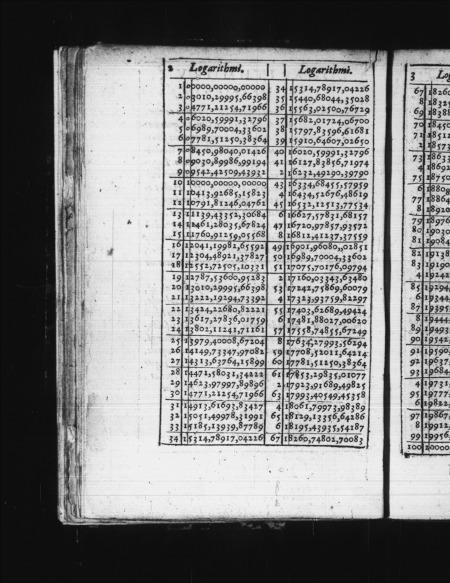 2 Logarithmi. Logarithmi.
1 00000,00000,00000 34 15314,78917,04226
2 03010,29995,66398 35 15440,68044,35028
3 04771,21254,71966 36 15563,02500,76729
4 06020,59991,32796 37 15682,01724,06700
5 06989,70004,33601 38 15797,83596,61681
6 07781,51250,38364 39 15910,64607,02650
7 08450,98040,01426 40 16020,59991,32796
8 09030,89986,99194 41 16127,83856,71974
9 09542,42509,43932 2 16232,49290,39790
10 10000,00000,00000 43 16334,68455,57959
11 10413,92685,15823 4 16434,52676,48619
12 10791,81246,04761 45 16532,12513,77534
13 11139,43352,30684 6 16627,57831,68157
14 11461,28035,67824 47 16720,97857,93572
15 11760,91259,05568 8 16812,41237,37559
16 12041,19982,65592 49 16901,96080,02851
17 12304,48921,37827 50 16989,70004,33602
18 12552,72505,10331 51 17075,70176,09794
19 12787,53600,95283 2 17160,03343,63480
20 13010,29995,66398 53 17242,75869,60079
21 13222,19294,73392 4 17323,93759,82297
22 13424,22680,82221 55 17403,62689,49424
23 13617,27836,01759 6 17481,88027,00620
24 13802,11241,71161 57 17558,74855,67249
25 13979,40008,67204 8 17634,27993,56294
26 14149,73347,97082 59 17708,52011,64214
27 14313,63764,15899 60 17781,51250,38364
28 14471,58031,34222 61 17853,29835,01077
29 14623,97997,89896 2 17923,91689,49825
30 14771,21254,71966 63 17993,40549,45358
31 14913,61693,83427 4 18061,79973,98389
32 15051,49978,31991 65 18129,13356,64286
33 15185,13939,87789 6 18195,43935,54187
34 15314,78917,04226 67 18260,74802,70083
3 Log
67 18260
8 18325
69 18388
70 18450
1 1851
2 18573
73 18633
4 18692
75 18750
6 18808
77 18864
8 18920
79 18976
80 19030
81 19084
82 19138
83 19190
4 19242
85 19294
6 19344
87 19395
8 19444
89 19493
90 19542
91 19590
92 19637
93 19684
4 19731
95 19777
6 19822
97 19867
8 19912
99 19956
100